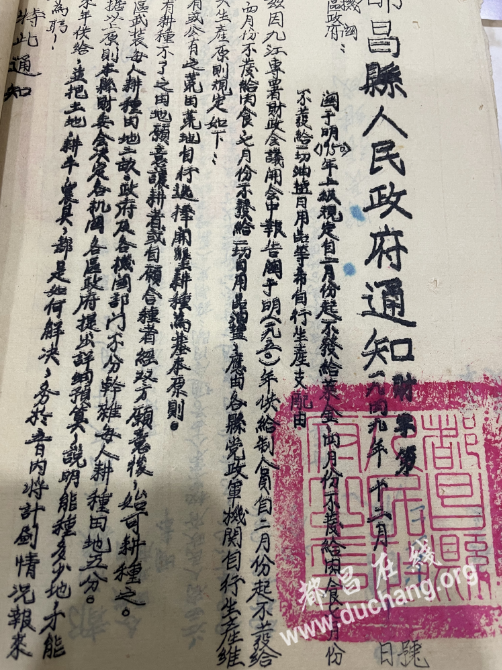 都昌縣人民政府通知 財軍第 號
一九四九年十二月 日
機關
區政府:
關于明(1950)年上級規定自二月份起不發給菜金四月份不發給肉食七月份
不發給一切油鹽日用品等希自行生產支配由
茲因九江專署財政會議開會中報告關于明(一九五〇)年供給制人員自二月份起不發給
四月份不發給肉食七月份不發給一切日用品油鹽,應由各縣党政軍機關自行生產維
生產原則規定如下:
有或公有之荒田荒地自行選擇開墾耕種為基本原則。
有耕種不了之田地願意讓耕者或自願合種者經双方願意後,始可耕種之。
區武裝每人耕種田地二畝政府及各機關部門不分幹雜每人耕種田地五分。
據以上原則本縣財委會決定各机關各區政府提出詳細預算,說明能種多少地才能
年供給,並把土地、耕牛、農具、都是如何解決,務於 日內將計劃情況報來
為盼
特此通知
都昌在线
www.duchang.org